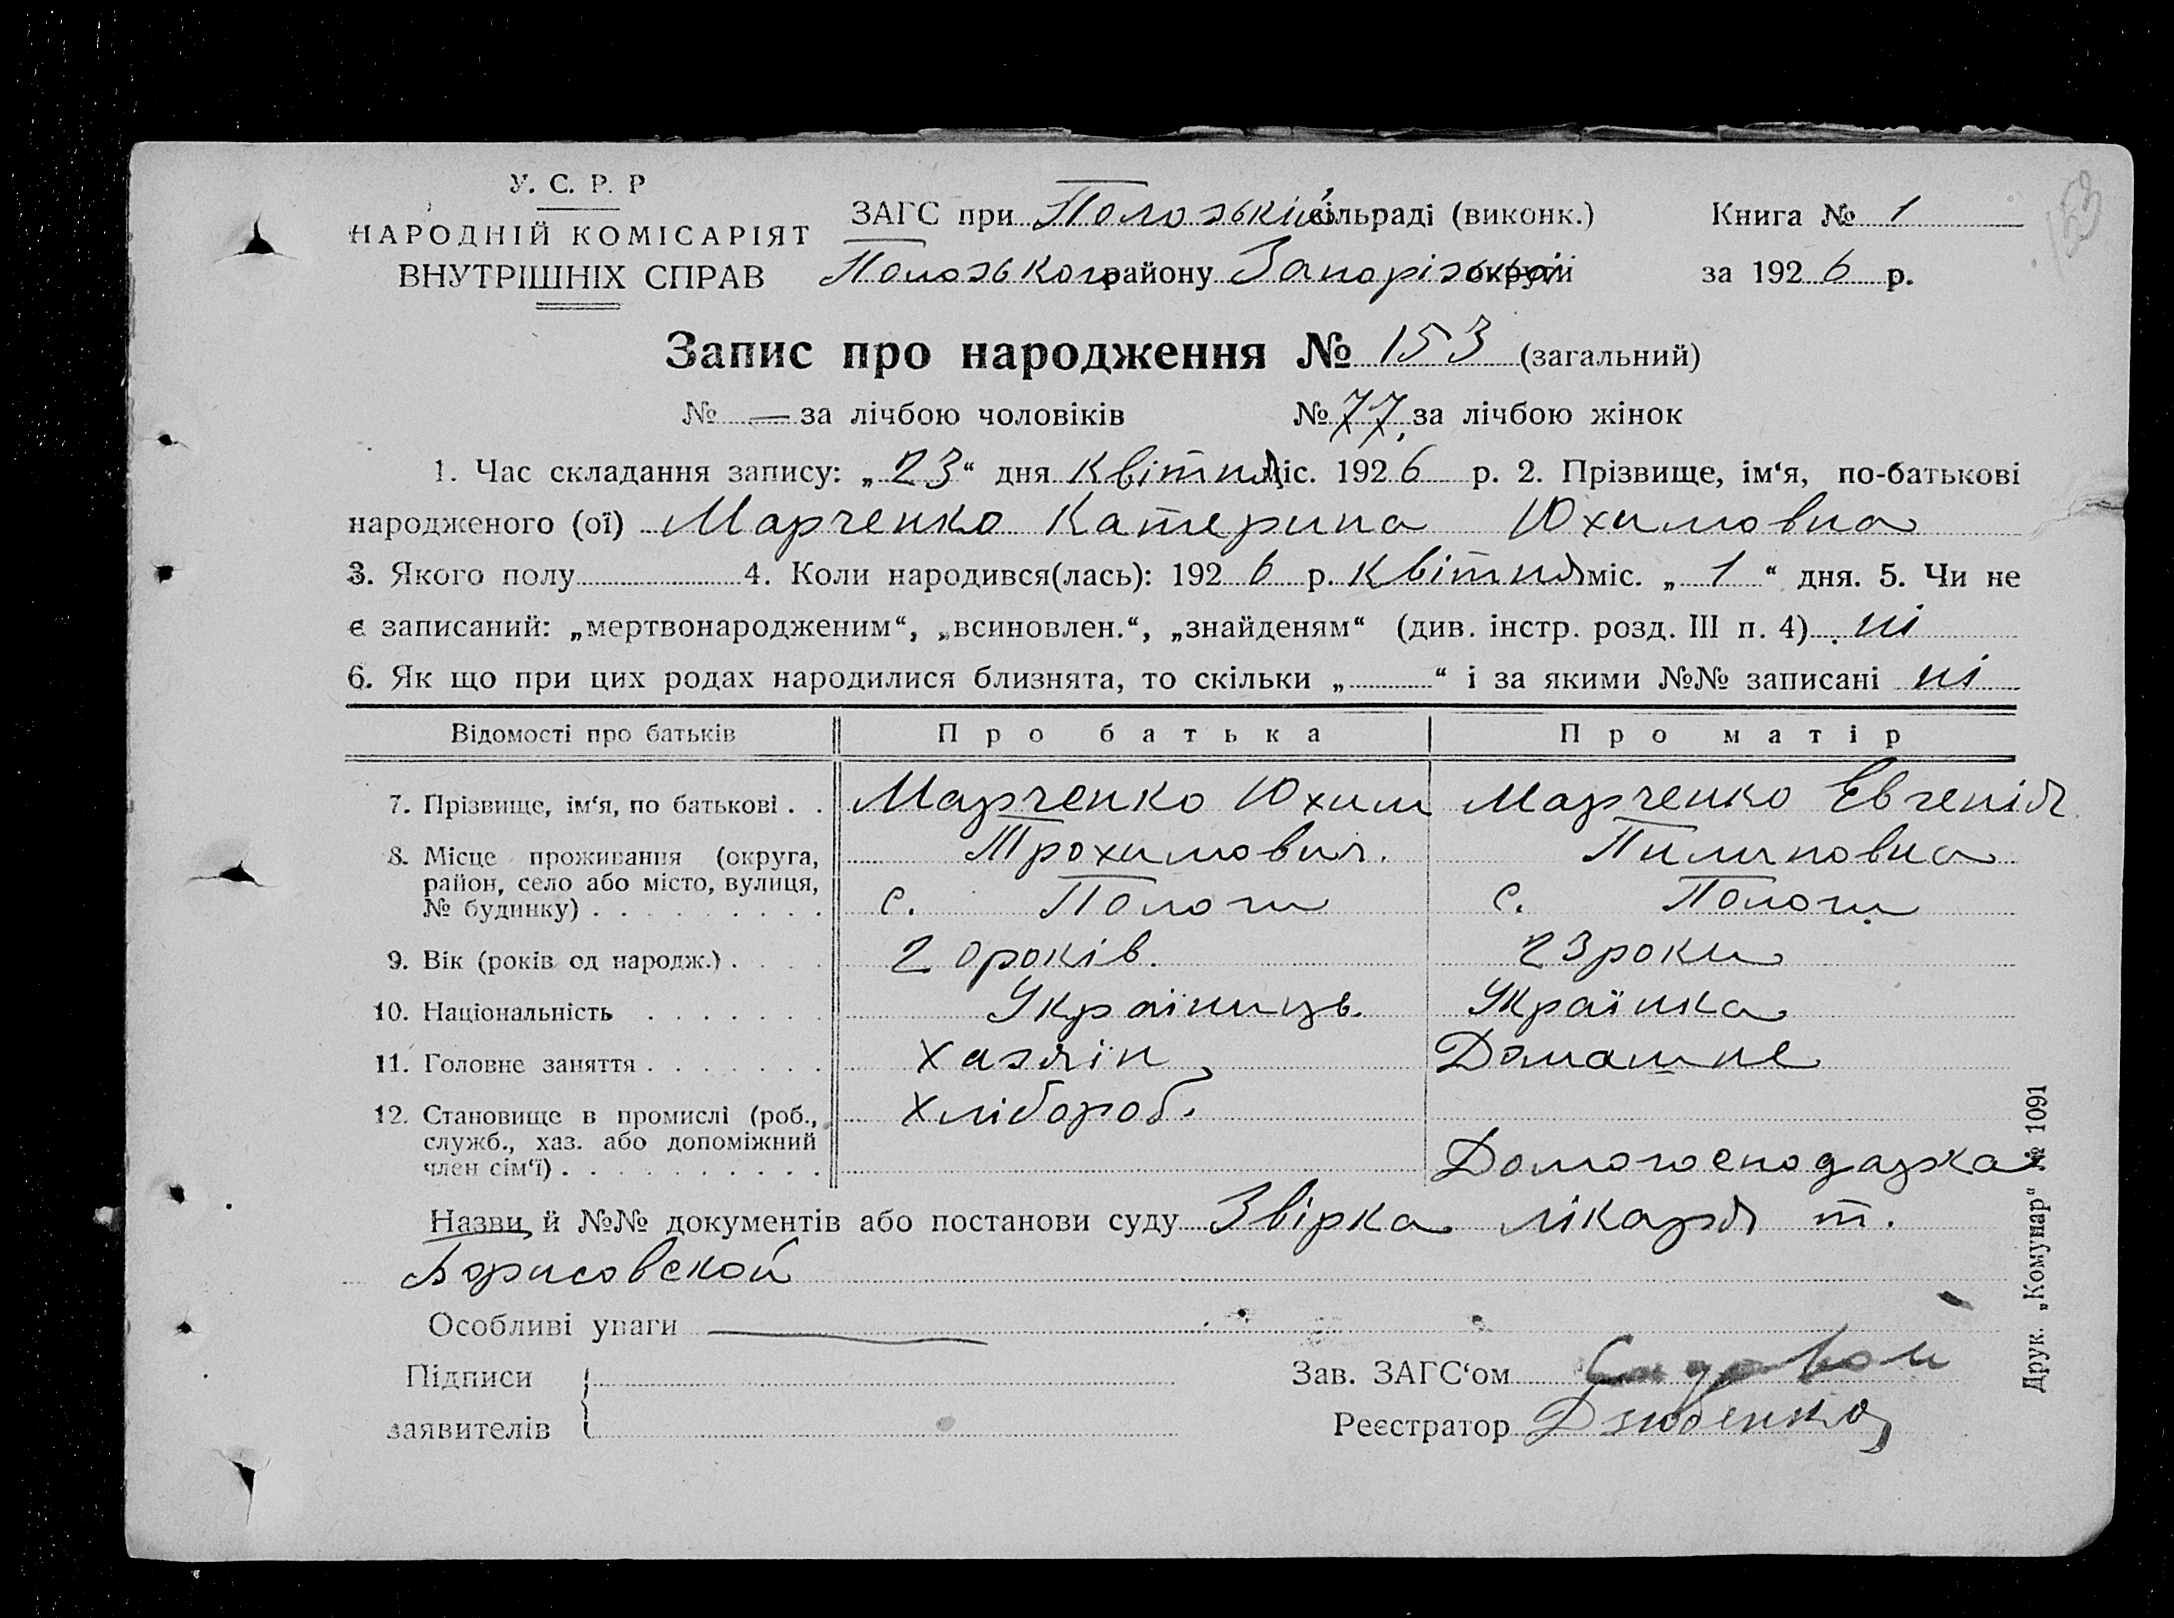 У. С. Р. Р
НАРОДНІЙ КОМІСАРІЯТ
ВНУТРІШНІХ СПРАВ
ЗАГС при Пологській сільраді (виконк.)
Пологського району Запорізької округи
Книга № 1
за 1926 р.
153
Запис про народження № 153 (загальний)
№ — за лічбою чоловіків № 77 за лічбою жінок
1. Час складання запису: „23“ дня квітня міс. 1926 р. 2. Прізвище, ім‘я, по-батькові
народженого (ої) Марченко Катерина Юхимовна
3. Якого полу 4. Коли народився(лась): 1926 р. квітня міс. „1“ дня. 5. Чи не
є записаний: „мертвонародженим“, „всиновлен.“, „знайденям“ (див. інстр. розд. III п. 4) ні
6. Як що при цих родах народилися близнята, то скільки „ “ і за якими №№ записані ні
Відомості про батьків Про батька Про матір
7. Прізвище, ім‘я, по батькові . . Марченко Юхим Марченко Евгенія
Трохимович. Пилиповна
8. Місце проживання (округа,
район, село або місто, вулиця,
№ будинку) . . . . . . . . . с. Пологи с. Пологи
9. Вік (років од народж.) . . . . 20 років. 23 роки
10. Національність . . . . . . . Українець. Українка
11. Головне заняття . . . . . . . Хазяїн Домашне
12. Становище в промислі (роб.,
служб., хаз. або допоміжний
член сім‘ї) . . . . . . . . . . Хлібороб. Домогосподарка
Назви й №№ документів або постанови суду Звірка лікаря т.
Борисовской
Особливі уваги —
Підписи
заявителів
Зав. ЗАГС‘ом Садовой
Реєстратор Дзюбенко
Друк. „Комунар“ № 1091